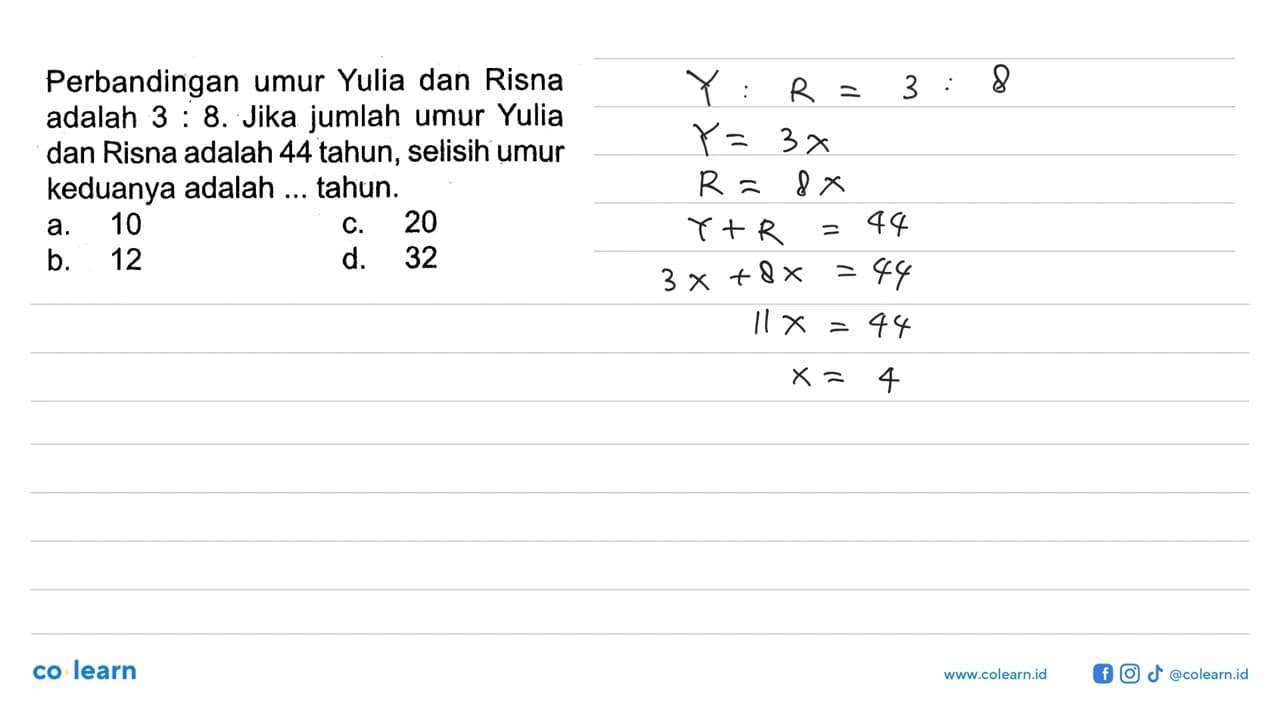 Perbandingan umur Yulia dan Risna
adalah 3 : 8. Jika jumlah umur Yulia
dan Risna adalah 44 tahun, selisih umur
keduanya adalah ... tahun.
a. 10 c. 20
b. 12 d. 32
Y : R = 3 : 8
Y = 3x
R = 8x
Y + R = 44
3x + 8x = 44
11x = 44
x = 4
co learn
www.colearn.id
@colearn.id